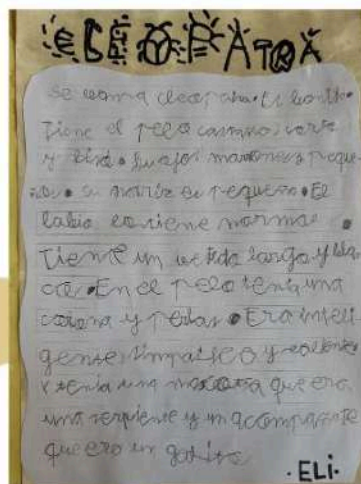 CLEOPATRA
Se llama cleopatra. Es bonita.
Tiene el pelo castaño, corto
y liso. Su ojos marrones y peque
ños. Su narriz es pequeña. El
labio lo tiene normal.
Tiene un vestido largo y blan
co. En el pelo tenia una
corona y perlas. Era inteli
gense, simpatica y valiente
y tenia una mascota que era
una serpiente y un acompañante
que era un gatito
. ELi.